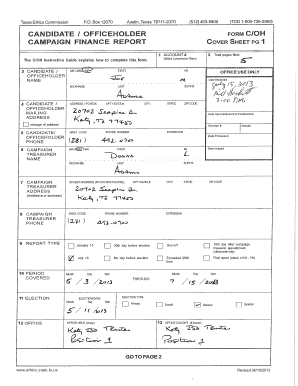 Texas Ethics Commission P.O. Box 12070 Austin, Texas 78711-2070 (512) 463-5800 (TDD 1-800-735-2989)
CANDIDATE / OFFICEHOLDER FORM C/OH
CAMPAIGN FINANCE REPORT COVER SHEET PG 1
The C/OH Instruction Guide explains how to complete this form.
1 ACCOUNT #
(Ethics Commission Filers)
2 Total pages filed:
5
3 CANDIDATE / OFFICEHOLDER NAME
FIRST MI
Joe M
NICKNAME LAST SUFFIX
Adams
OFFICE USE ONLY
Date Received
July 15, 2013
4 CANDIDATE / OFFICEHOLDER MAILING ADDRESS
change of address
ADDRESS / PO BOX; APT / SUITE #; CITY; STATE; ZIP CODE
20702
Katy, TX 77450
5 CANDIDATE/ OFFICEHOLDER PHONE
AREA CODE PHONE NUMBER EXTENSION
(281) 492.0700
Receipt # Amount
Date Processed
6 CAMPAIGN TREASURER NAME
FIRST MI
Donna L
NICKNAME LAST SUFFIX
Adams
Date Imaged
7 CAMPAIGN TREASURER ADDRESS
(residence or business)
STREET ADDRESS (NO PO BOX PLEASE); APT / SUITE #; CITY; STATE; ZIP CODE
20702
Katy, TX 77450
8 CAMPAIGN TREASURER PHONE
AREA CODE PHONE NUMBER EXTENSION
(281) 492.0700
9 REPORT TYPE
January 15 30th day before election Runoff 15th day after campaign treasurer appointment (officeholder only)
July 15 8th day before election Exceeded $500 limit Final report (Attach C/OH - FR)
10 PERIOD COVERED
Month Day Year Month Day Year
5 / 3 / 2013 THROUGH 7 / 15 / 2013
11 ELECTION
ELECTION DATE ELECTION TYPE
Month Day Year
5 / 11 / 2013
Primary Runoff General Special
12 OFFICE
OFFICE HELD (if any)
Katy ISD
Position 1
13 OFFICE SOUGHT (if known)
Katy ISD
Position 1
GO TO PAGE 2
www.ethics.state.tx.us Revised 04/19/2013